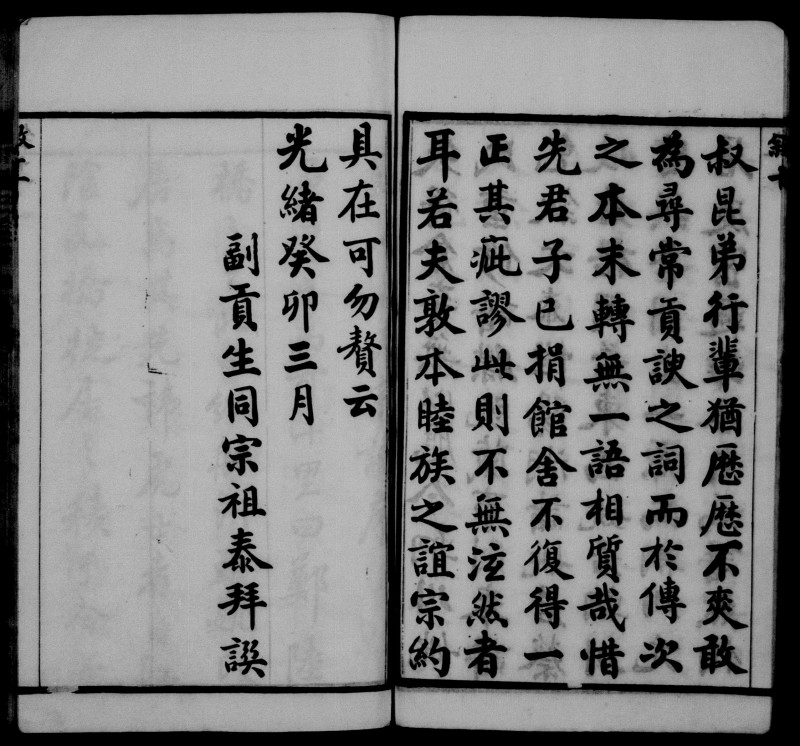 叔昆弟行輩猶歷歷不爽敢
為尋常貢諛之詞而於傳次
之本末轉無一語相質哉惜
先君子已捐館舍不復得一
正其疵謬此則不無泫然者
耳若夫敦本睦族之誼宗約
具在可勿贅云
光緒癸卯三月
副貢生同宗祖泰拜譔